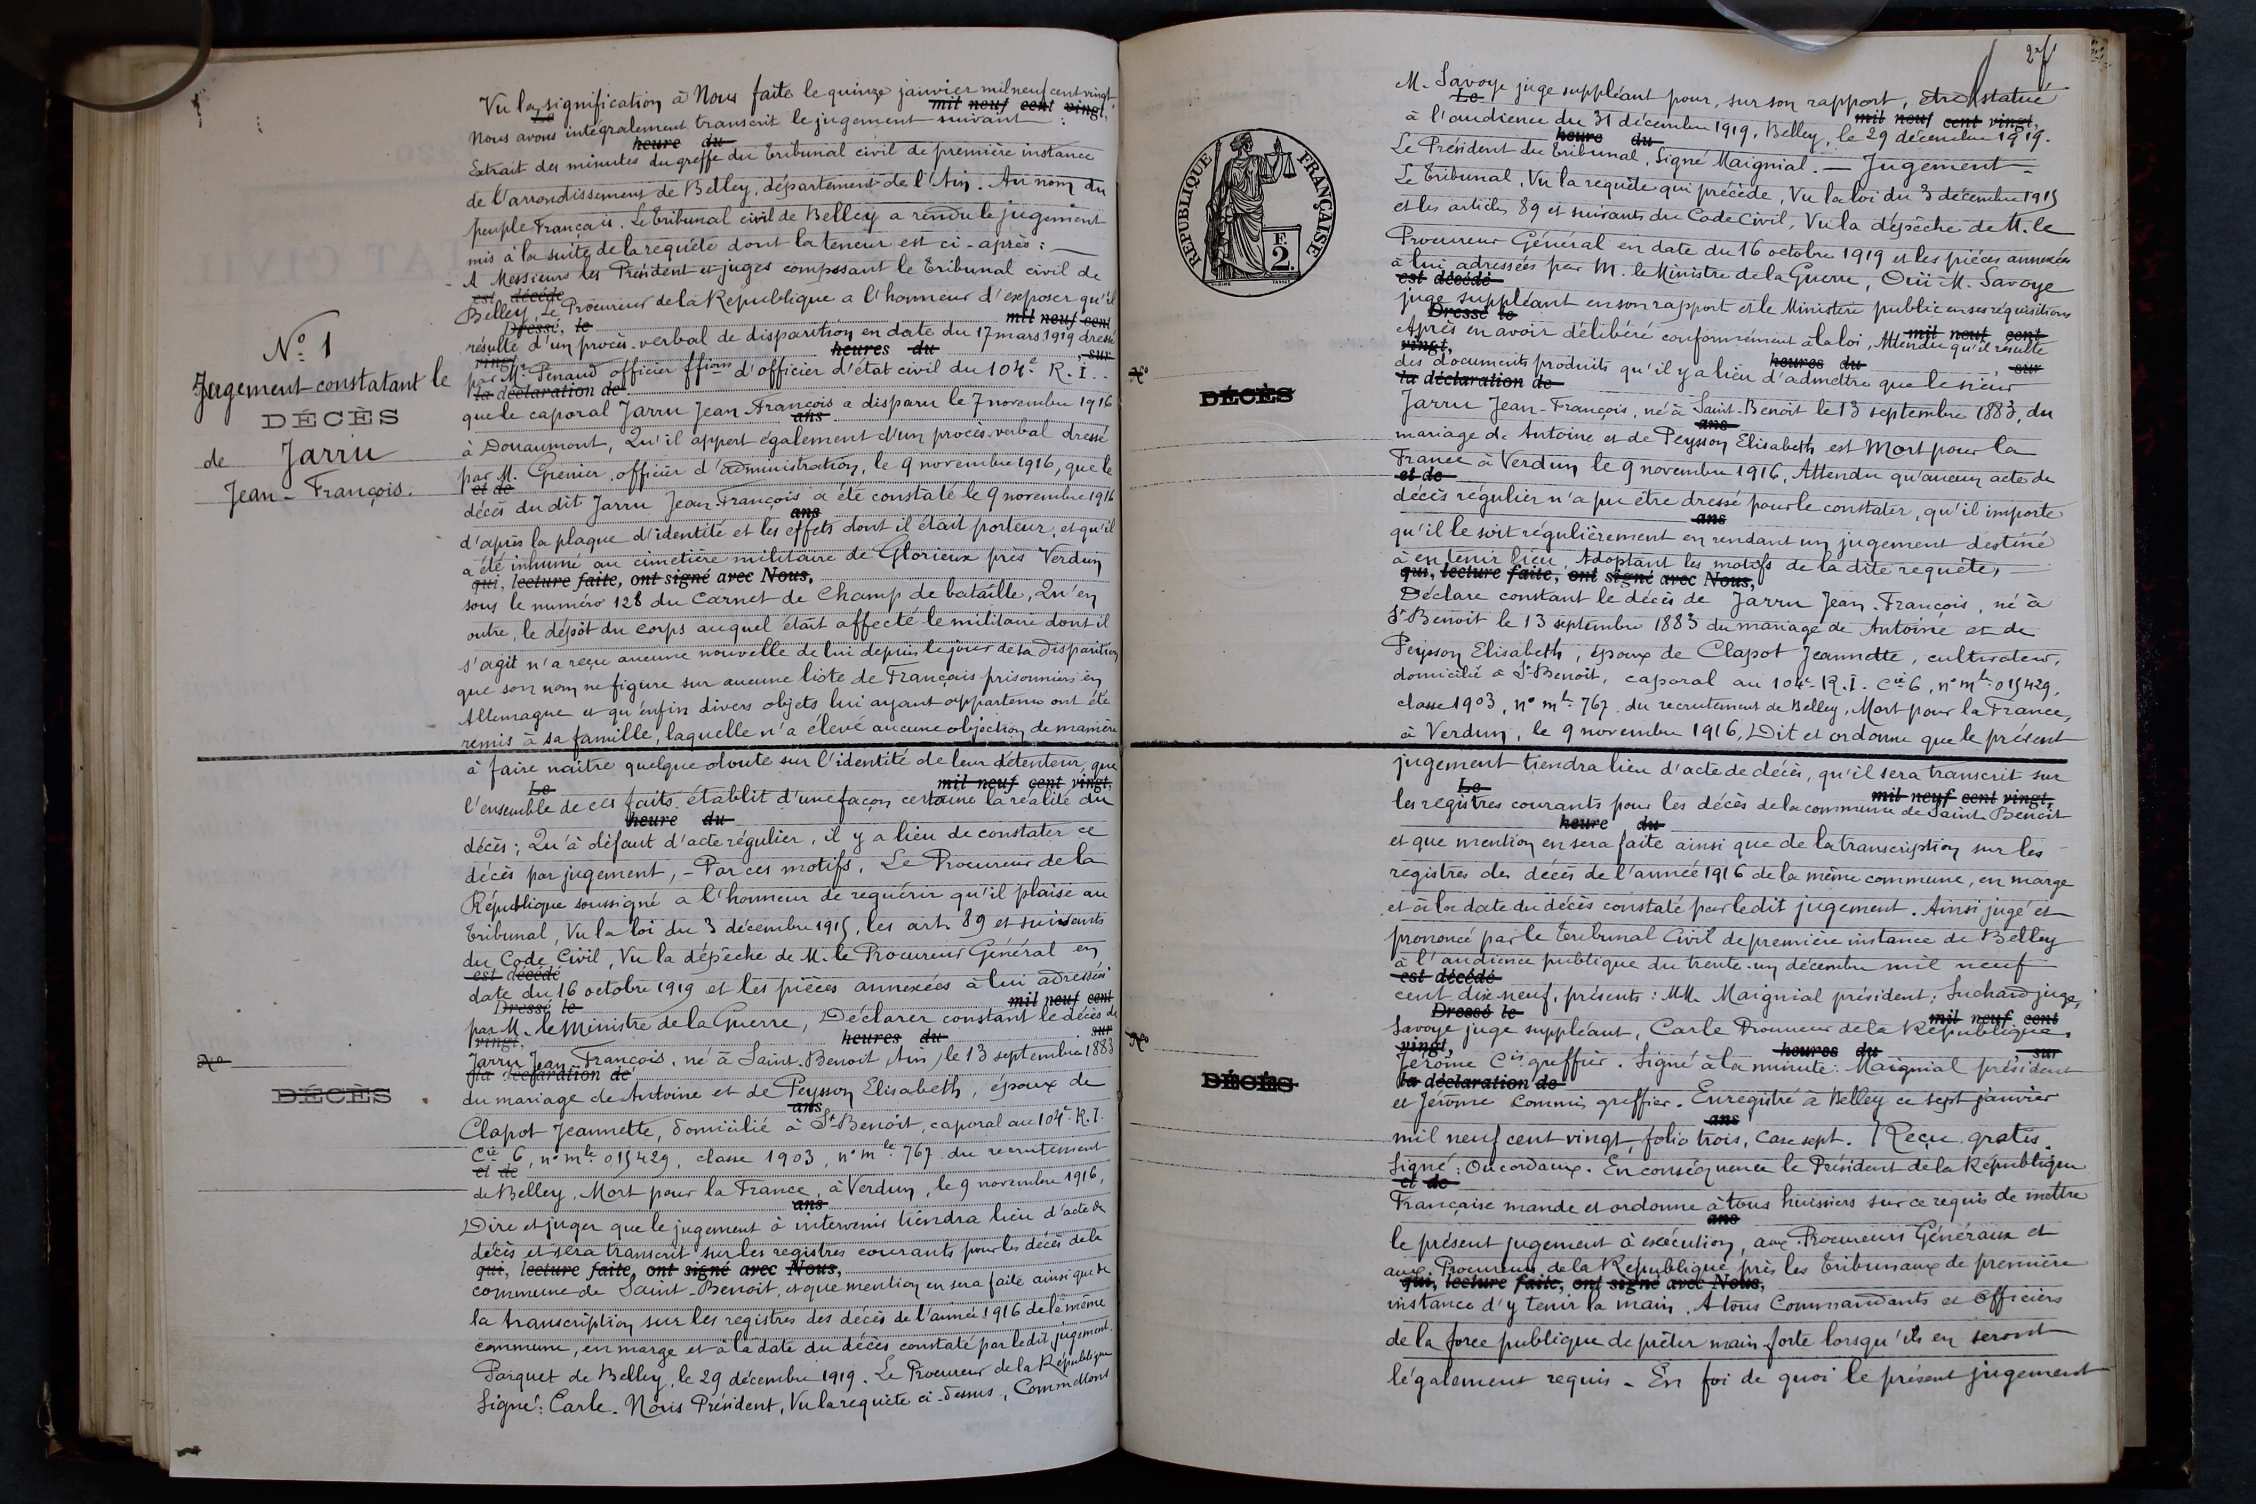 Vu la signification à Nous faite le quinze janvier mil neuf cent vingt
Le mil neuf cent vingt,
Nous avons intégralement transcrit le jugement suivant :
heure du
Extrait des minutes du greffe du Tribunal civil de première instance
de l'arrondissement de Belley, département de l'Ain. Au nom du
peuple Français. Le Tribunal civil de Belley a rendu le jugement
mis à la suite de la requête dont la teneur est ci-après :
A Messieurs les Président et juges composant le Tribunal civil de
est décédé
Belley, Le Procureur de la République a l'honneur d'exposer qu'il
Dressé, le mil neuf cent
résulte d'un procès-verbal de disparition en date du 17 mars 1919 dressé
vingt, heures du , sur
par Mr. Penaud officier ffions d'officier d'état civil du 104e R.I.
la déclaration de
que le caporal Jarru Jean François a disparu le 7 novembre 1916
ans
à Douaumont, Qu'il appert également d'un procès-verbal dressé
par M. Grenier, officier d'administration, le 9 novembre 1916, que le
et de
décès du dit Jarru Jean-François a été constaté le 9 novembre 1916
ans
d'après la plaque d'identité et les effets dont il était porteur, et qu'il
a été inhumé au cimetière militaire de Glorieux près Verdun
qui, lecture faite, ont signé avec Nous,
sous le numéro 128 du Carnet de Champ de bataille, Qu'en
outre, le dépôt du corps auquel était affecté le militaire dont il
s'agit n'a reçu aucune nouvelle de lui depuis le jour de sa disparition
que son nom ne figure sur aucune liste de Français prisonniers en
Allemagne et qu'enfin divers objets lui ayant appartenu ont été
remis à sa famille, laquelle n'a élevé aucune objection de manière
à faire naître quelque doute sur l'identité de leur détenteur, que
Le mil neuf cent vingt,
l'ensemble de ces faits établit d'une façon certaine la réalité du
heure du
décès ; Qu'à défaut d'acte régulier, il y a lieu de constater ce
décès par jugement, - Par ces motifs, Le Procureur de la
République soussigné a l'honneur de requérir qu'il plaise au
Tribunal, Vu la loi du 3 décembre 1915, les art. 89 et suivants
du Code Civil, Vu la dépêche de M. le Procureur Général en
est décédé
date du 16 octobre 1919 et les pièces annexées à lui adressées
Dressé le mil neuf cent
par M. le Ministre de la Guerre, Déclarer constant le décès de
vingt, heures du sur
Jarru Jean François, né à Saint-Benoit (Ain) le 13 septembre 1883
la déclaration de
du mariage de Antoine et de Peysson Elisabeth, époux de
ans
Clapot Jeannette, domicilié à St Benoit, caporal au 104e R.I.
Cie 6, n° mle 015429, classe 1903, n° mle 767 du recrutement
et de
de Belley, Mort pour la France, à Verdun, le 9 novembre 1916,
ans
Dire et juger que le jugement à intervenir tiendra lieu d'acte de
décès et sera transcrit sur les registres courants pour les décès de la
qui, lecture faite, ont signé avec Nous,
commune de Saint-Benoit, et que mention en sera faite ainsi que de
la transcription sur les registres des décès de l'année 1916 de la même
commune, en marge et à la date du décès constaté par ledit jugement.
Parquet de Belley, le 29 décembre 1919. Le Procureur de la République
Signé : Carle. Nous Président, Vu la requête ci-dessus, Commettons
N° 1
Jugement constatant le
DÉCÈS
de Jarru
Jean-François.
N°
DÉCÈS
M. Savoye juge suppléant pour, sur son rapport, être statué
Le mil neuf cent vingt,
à l'audience du 31 décembre 1919. Belley, le 29 décembre 1919.
heure du
Le Président du Tribunal, Signé Maignial. — Jugement -
Le Tribunal, Vu la requête qui précède, Vu la loi du 3 décembre 1915
et les articles 89 et suivants du Code Civil, Vu la dépêche de M. le
Procureur Général en date du 16 octobre 1919 et les pièces annexées
à lui adressées par M. le Ministre de la Guerre, Ouï M. Savoye
est décédé
juge suppléant en son rapport et le Ministère public en ses réquisitions
Dressé le mil neuf cent
Après en avoir délibéré conformément à la loi, Attendu qu'il résulte
vingt, heures du sur
des documents produits qu'il y a lieu d'admettre que le sieur
la déclaration de
Jarru Jean-François, né à Saint-Benoit le 13 septembre 1883, du
ans
mariage de Antoine et de Peysson Elisabeth est Mort pour la
France à Verdun le 9 novembre 1916, Attendu qu'aucun acte de
et de
décès régulier n'a pu être dressé pour le constater, qu'il importe
ans
qu'il le soit régulièrement en rendant un jugement destiné
à en tenir lieu, Adoptant les motifs de la dite requête,
qui, lecture faite, ont signé avec Nous,
Déclare constant le décès de Jarru Jean-François, né à
St Benoit le 13 septembre 1883 du mariage de Antoine et de
Peysson Elisabeth, époux de Clapot Jeannette, cultivateur,
domicilié à St Benoit, caporal au 104e R.I. Cie 6, n° mle 015429,
classe 1903, n° mle 767 du recrutement de Belley, Mort pour la France,
à Verdun, le 9 novembre 1916, Dit et ordonne que le présent
jugement tiendra lieu d'acte de décès, qu'il sera transcrit sur
Le mil neuf cent vingt,
les registres courants pour les décès de la commune de Saint Benoit
heure du
et que mention en sera faite ainsi que de la transcription sur les
registres des décès de l'année 1916 de la même commune, en marge
et à la date du décès constaté par ledit jugement. Ainsi jugé et
prononcé par le Tribunal Civil de première instance de Belley
à l'audience publique du trente-un décembre mil neuf
est décédé
cent dix-neuf, présents : MM. Maignial président, Suchard juge,
Dressé le mil neuf cent
Savoye juge suppléant, Carle Procureur de la République,
vingt, heures du sur
Jérôme Cis greffier. Signé à la minute : Maignial président
la déclaration de
et Jérôme Commis greffier. Enregistré à Belley ce sept janvier
ans
mil neuf cent vingt, folio trois, Case sept. Reçu gratis.
Signé : . En conséquence le Président de la République
et de
Française mande et ordonne à tous huissiers sur ce requis de mettre
ans
le présent jugement à exécution, aux Procureurs Généraux et
aux Procureurs de la République près les Tribunaux de première
qui, lecture faite, ont signé avec Nous,
instance d'y tenir la main, A tous Commandants et Officiers
de la force publique de prêter main-forte lorsqu'ils en seront
légalement requis - En foi de quoi le présent jugement
RÉPUBLIQUE FRANÇAISE
F.
2.
N°
DÉCÈS
N°
DÉCÈS